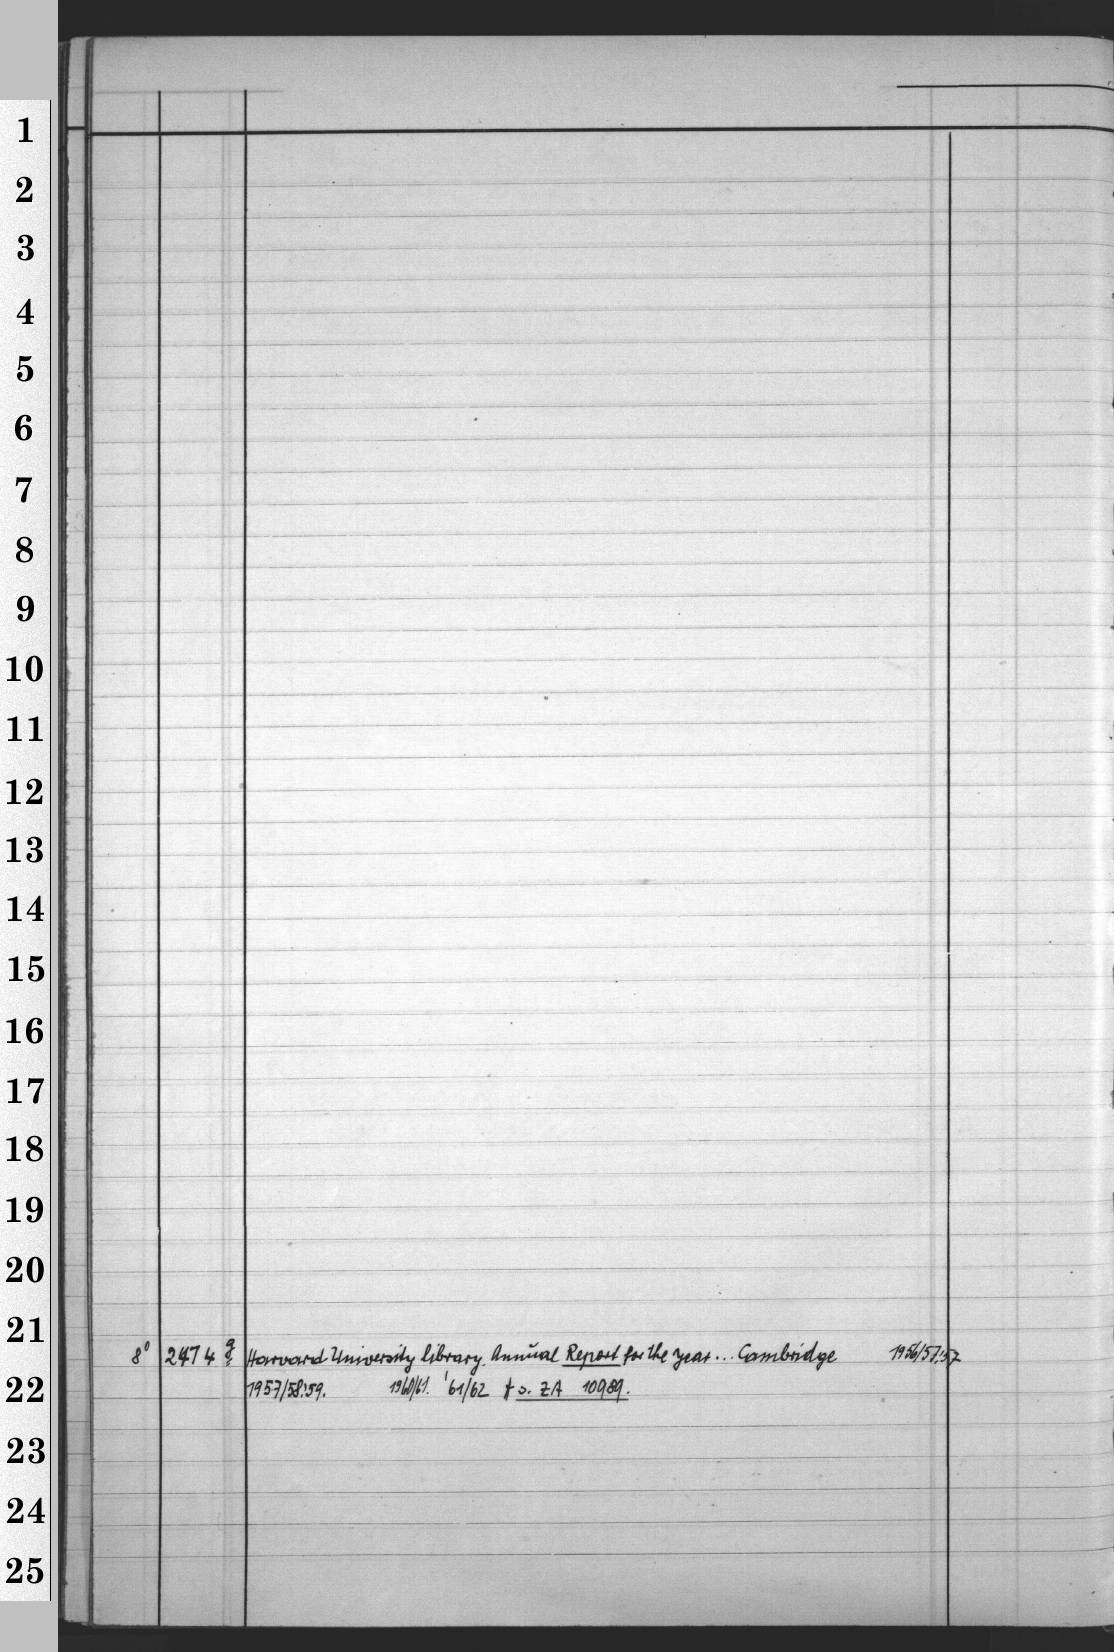 1
2
3
4
5
6
7
8
9
10
11
12
13
14
15
16
17
18
19
20
21
8⁰ 2474 Harvard University library. Annual Report for the year... Cambridge 1956/57:57
22
1957/58:59. 1960/61. '61/62 † s. ZA 10989.
23
24
25